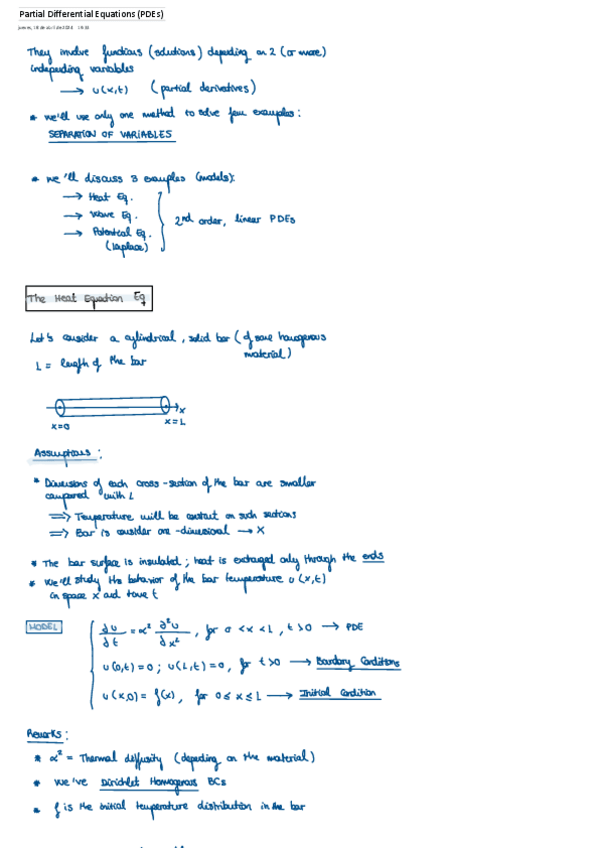 Partial Differential Equations (PDEs)
They involve functions (solutions) depending on 2 (or more)
independing variables
→ u(x,t) (partial derivatives)
* we'll use only one method to solve few examples:
SEPARATION OF VARIABLES
* we'll discuss 3 examples (models):
→ Heat Eq.
→ Wave Eq.
→ Potential Eq.
(Laplace)
2nd order, linear PDEs
The Heat Equation Eq
Let's consider a cylindrical, solid bar (of some homogenous
material)
L = length of the bar
x=0
x
x=L
Assumptions:
* Dimensions of each cross-section of the bar are smaller
compared with L
⇒ Temperature will be constant on such sections
⇒ Bar is consider one-dimensional → x
* The bar surface is insulated; heat is exchaged only through the ends
* We'll study the behavior of the bar temperature u(x,t)
in space x and time t
MODEL
∂u/∂t = α² ∂²u/∂x², for 0 < x < L, t > 0 → PDE
u(0,t)=0 ; u(L,t)=0, for t>0 → Boundary Conditions
u(x,0) = f(x), for 0 ≤ x ≤ L → Initial Condition
Remarks:
* α² = Thermal diffusity (depending on the material)
* We've Dirichlet Homogenous BCs
* f is the initial temperature distribution in the bar